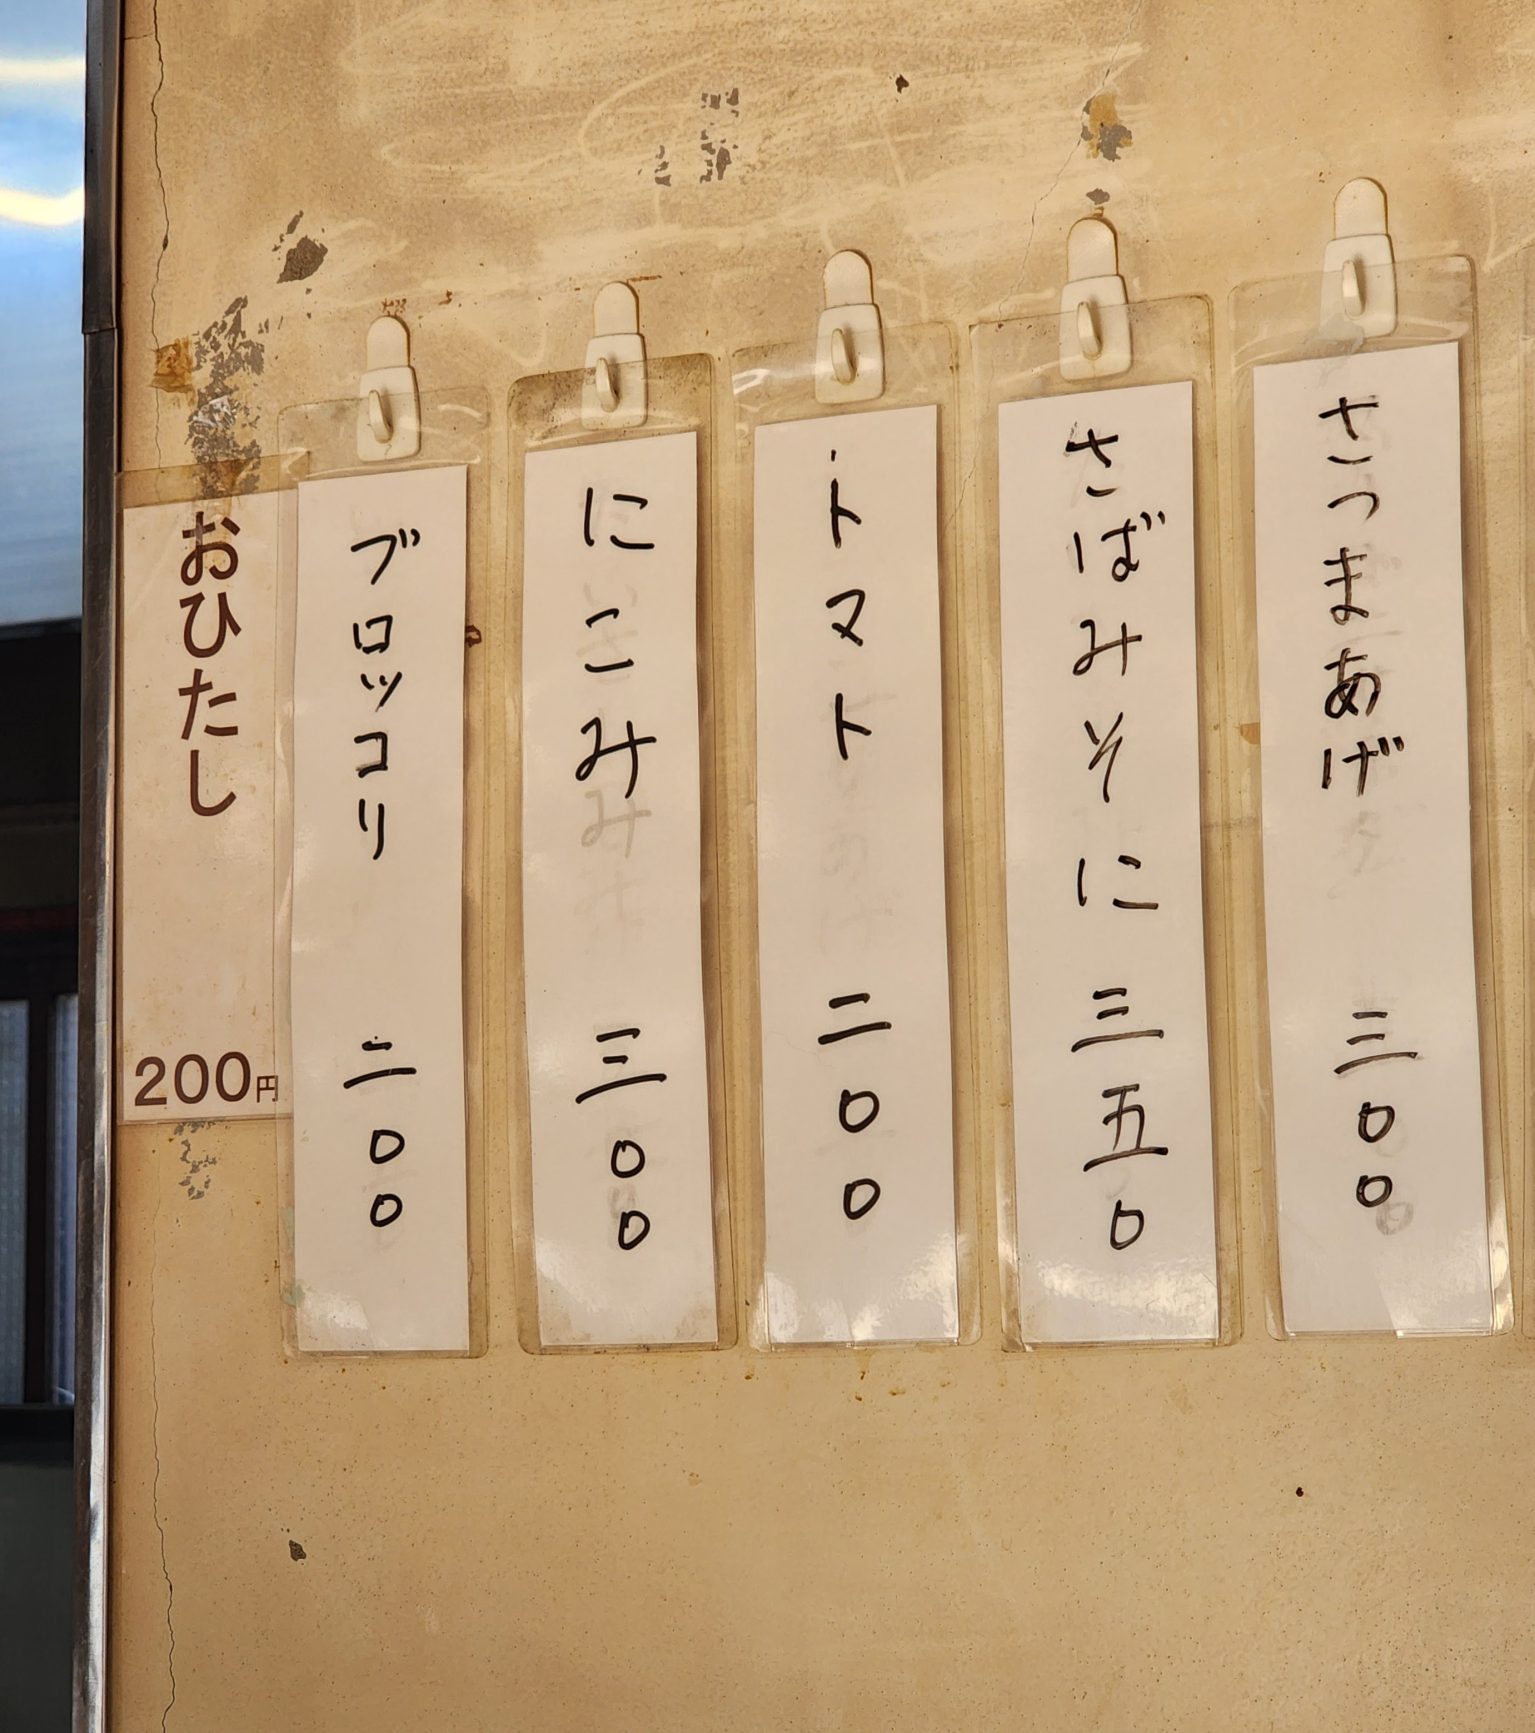 さつまあげ 三〇〇
さばみそに 三五〇
トマト 二〇〇
にこみ 三〇〇
ブロッコリ 二〇〇
おひたし 200円